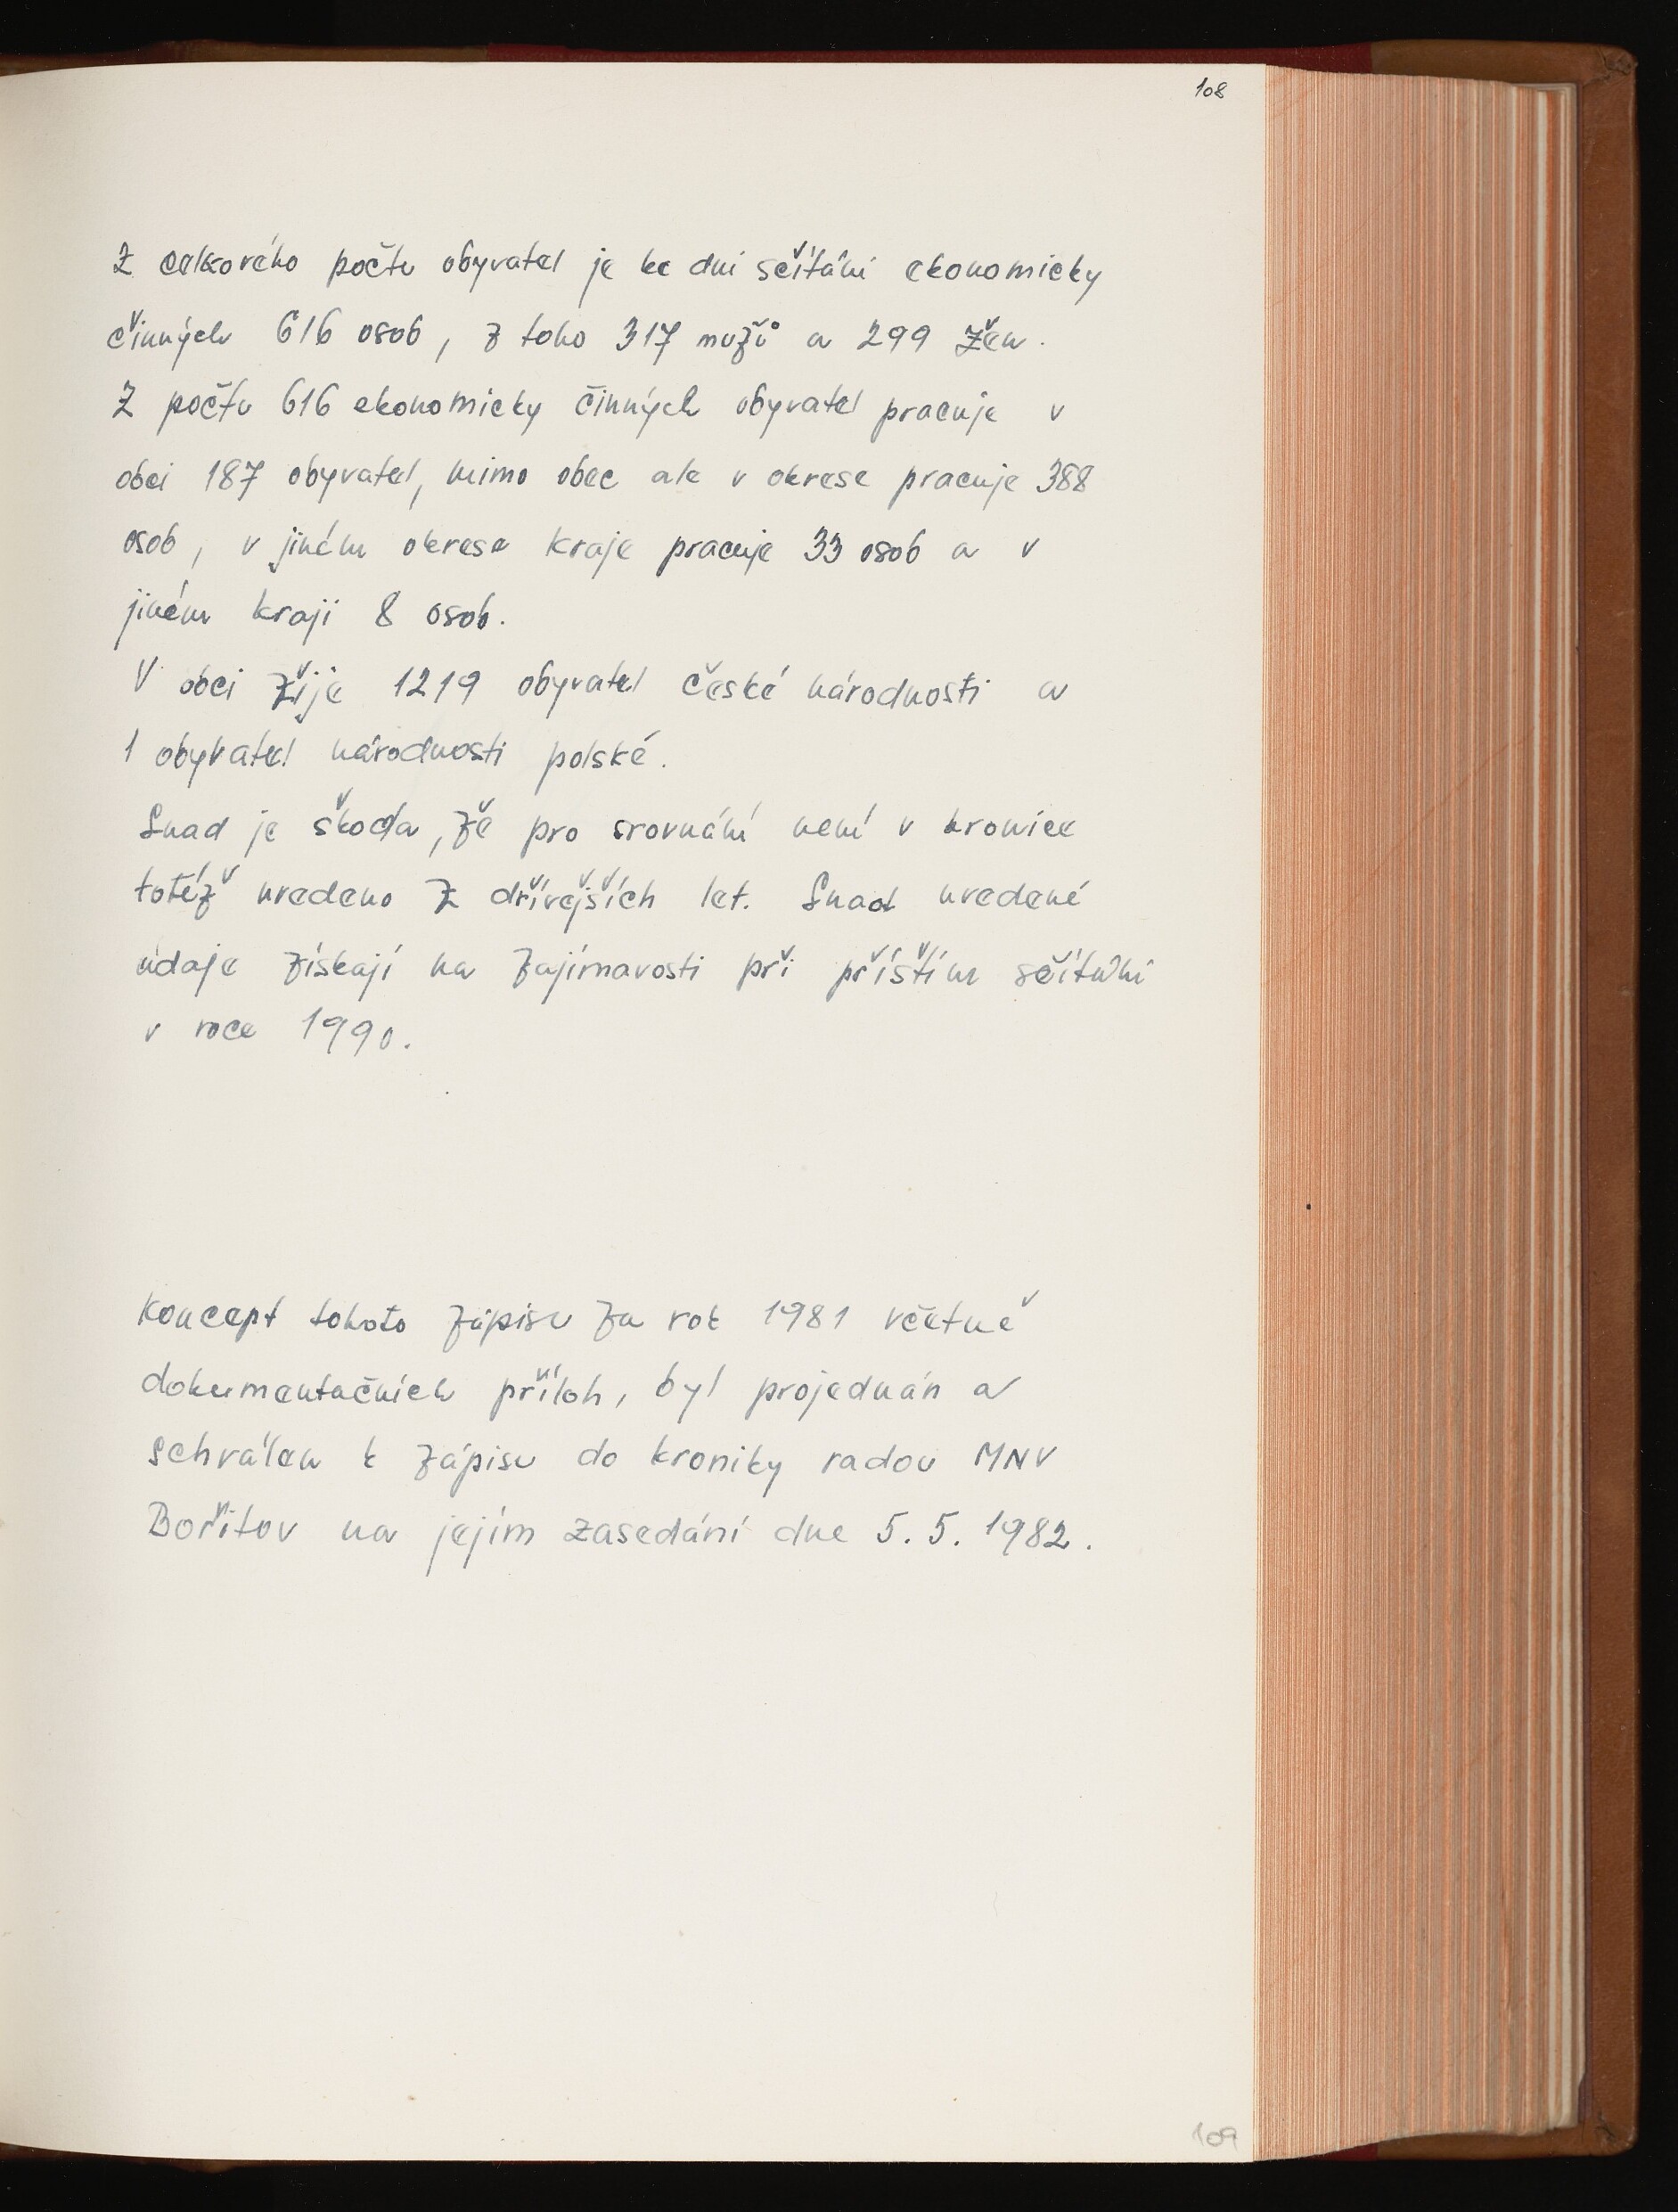 108
Z celkového počtu obyvatel je ke dni sčítání ekonomicky
činných 616 osob, z toho 317 mužů a 299 žen.
Z počtu 616 ekonomicky činných obyvatel pracuje v
obci 187 obyvatel, mimo obec ale v okrese pracuje 388
osob, v jiném okrese kraje pracuje 33 osob a v
jiném kraji 8 osob.
V obci žije 1219 obyvatel české národnosti a
1 obyvatel národnosti polské.
Snad je škoda, že pro srovnání není v kronice
totéž uvedeno z dřívějších let. Snad uvedené
údaje získají na zajímavosti při příštím sčítání
v roce 1990.
Koncept tohoto zápisu za rok 1981 včetně
dokumentačních příloh, byl projednán a
schválen k zápisu do kroniky radou MNV
Bořitov na jejím zasedání dne 5. 5. 1982.
109